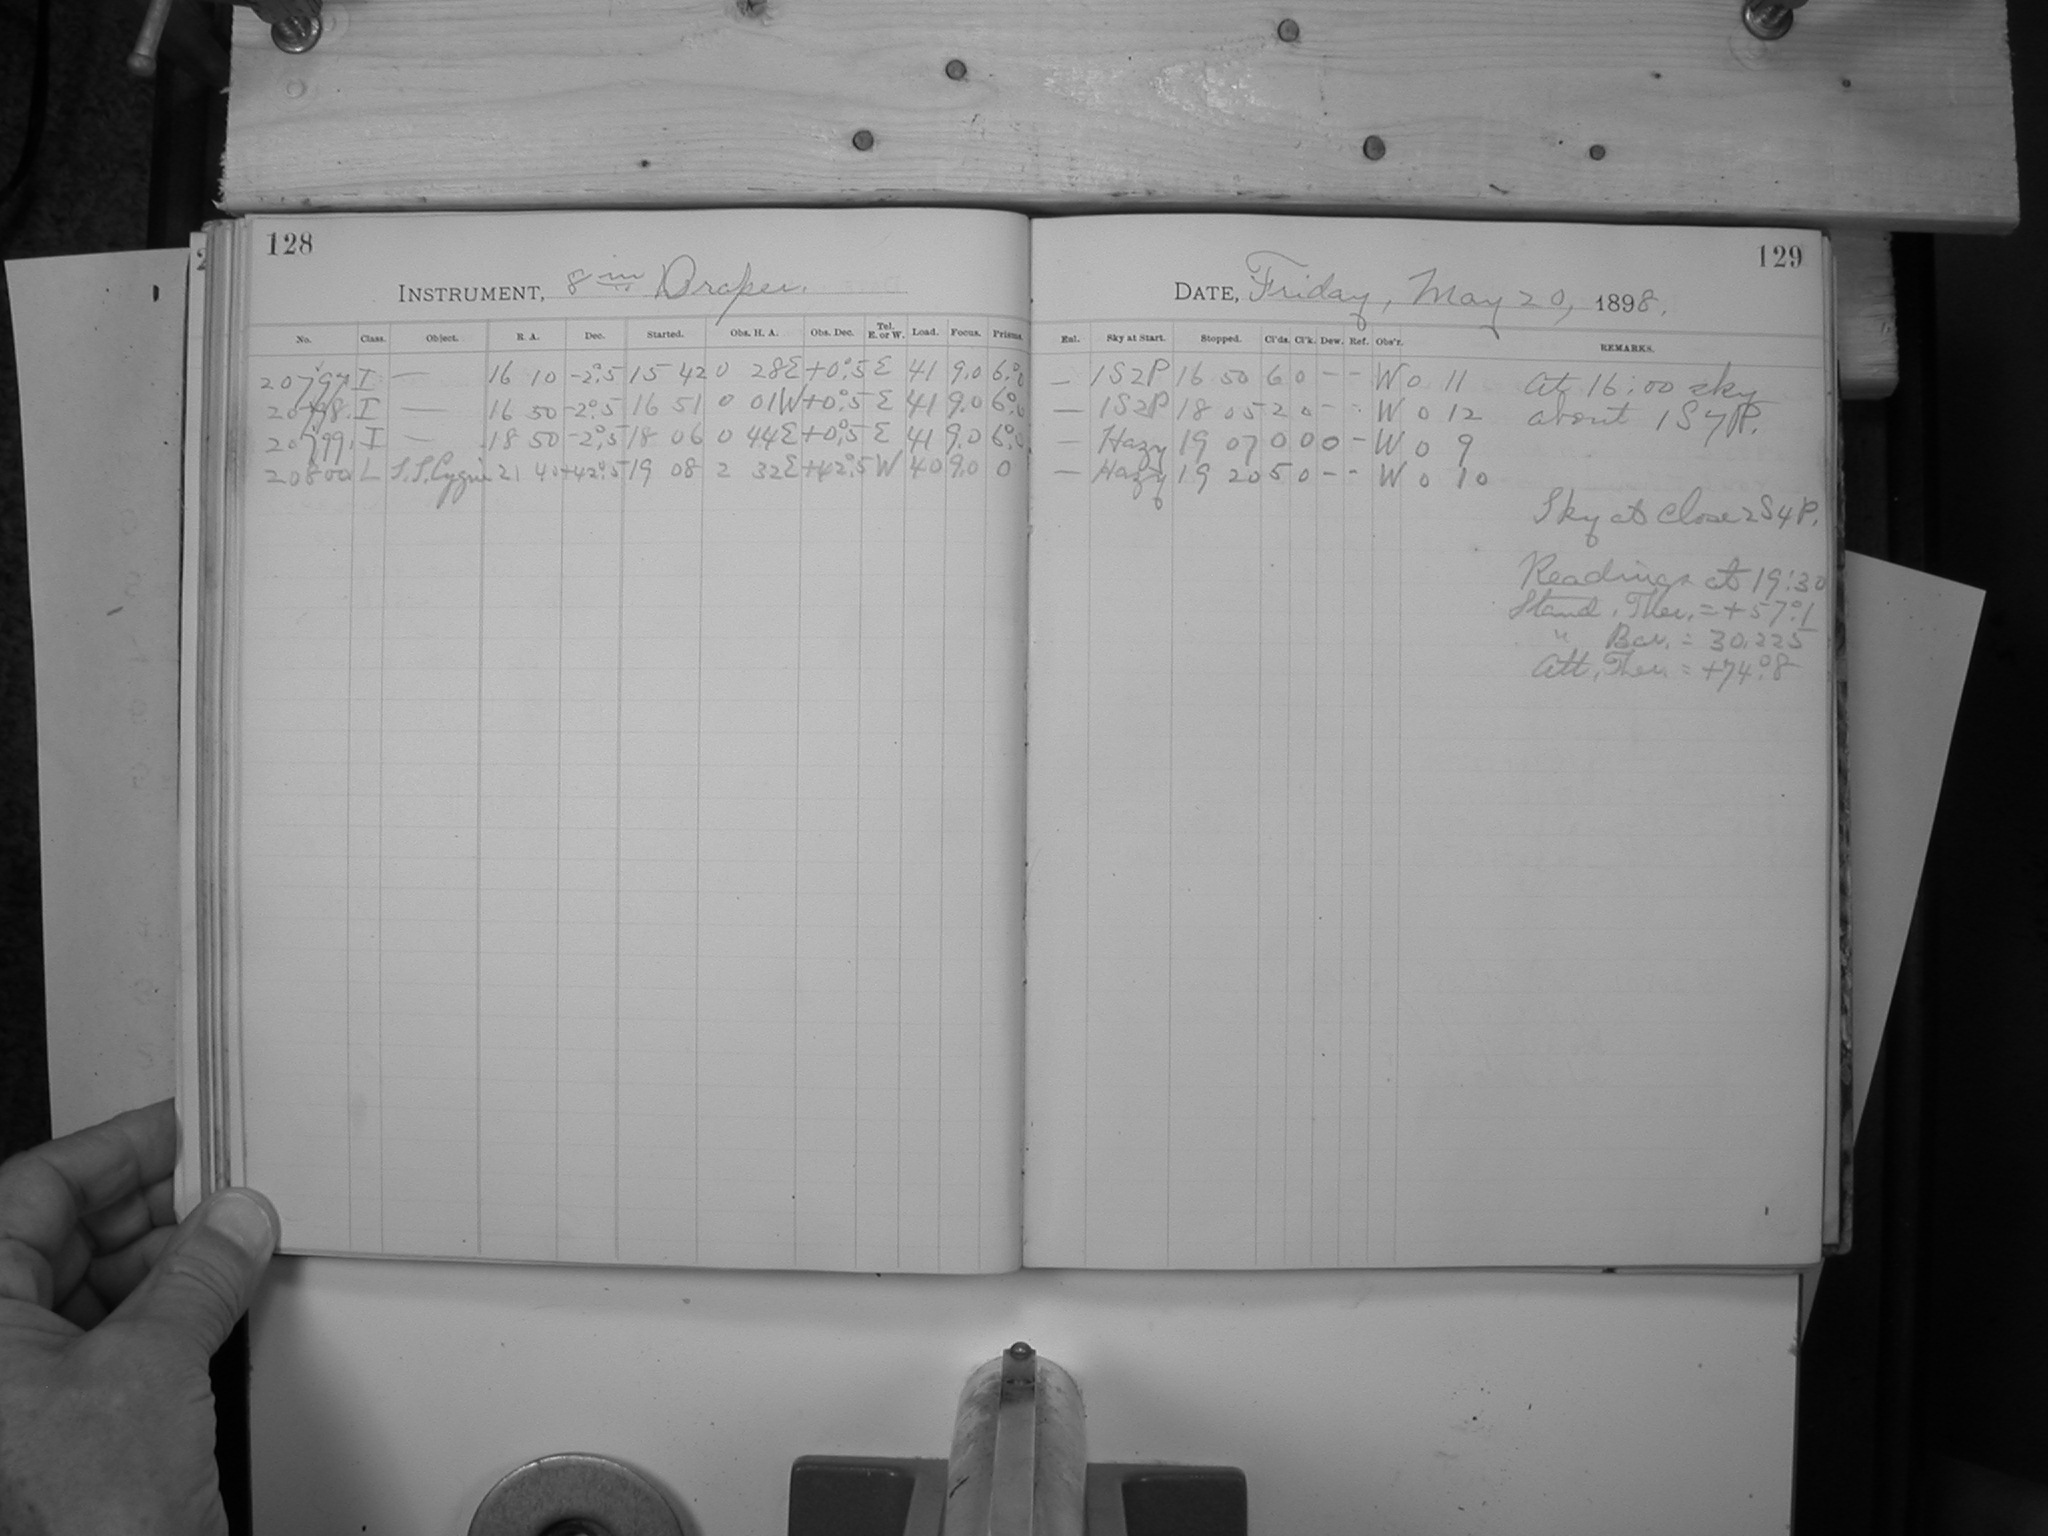 128
INSTRUMENT, 8 in Draper.
No. Class. Object. R. A. Dec. Started. Obs. H. A. Obs. Dec. Tel. E. or W. Load. Focus. Prisms.
20797. I — 16 10 -2°.5 15 42 0 28E +0°.5 E 41 9.0 6°.0
20798. I — 16 50 -2°.5 16 51 0 01W +0°.5 E 41 9.0 6°.0
20799. I — 18 50 -2°.5 18 06 0 44E +0°.5 E 41 9.0 6°.0
20800. L S.S. Cygni 21 40 +42°.5 19 08 2 32E +42°.5 W 40 9.0 0
129
DATE, Friday, May 20, 1898.
Enl. Sky at Start. Stopped. Cl'ds. Cl'k. Dew. Ref. Obs'r. REMARKS.
— 1S2P 16 50 6 0 - - W 0 11 At 16:00 sky
— 1S2P 18 05 2 0 - - W 0 12 about 1S7P.
— Hazy 19 07 0 0 0 - W 0 9
— Hazy 19 20 5 0 - - W 0 10
Sky at close 2S4P.
Readings at 19:30
Stand. Ther. = +57°.1
" Bar. = 30.225
Att. Ther. = +74°.8